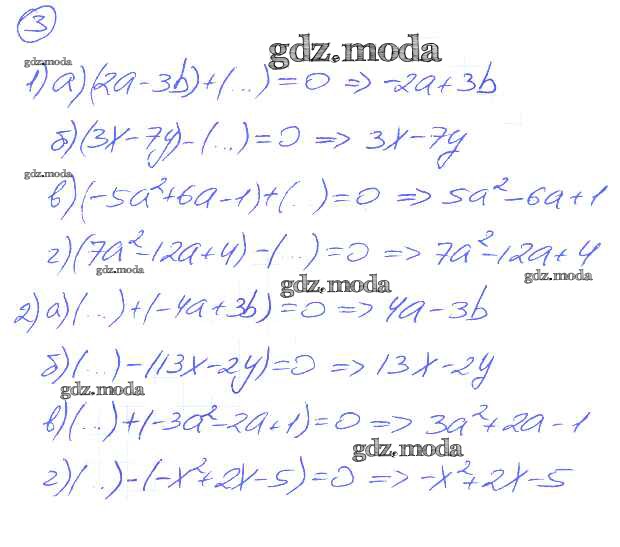 3
gdz.moda
gdz.moda
1) а) (2a-3b)+(...)=0 => -2a+3b
б) (3x-7y)-(...)=0 => 3x-7y
gdz.moda
в) (-5a²+6a-1)+(...)=0 => 5a²-6a+1
г) (7a²-12a+4)-(...)=0 => 7a²-12a+4
gdz.moda
gdz.moda
gdz.moda
2) а) (...)+(-4a+3b)=0 => 4a-3b
б) (...)-(13x-2y)=0 => 13x-2y
gdz.moda
в) (...)+(-3a²-2a+1)=0 => 3a²+2a-1
gdz.moda
г) (...)-(-x²+2x-5)=0 => -x²+2x-5